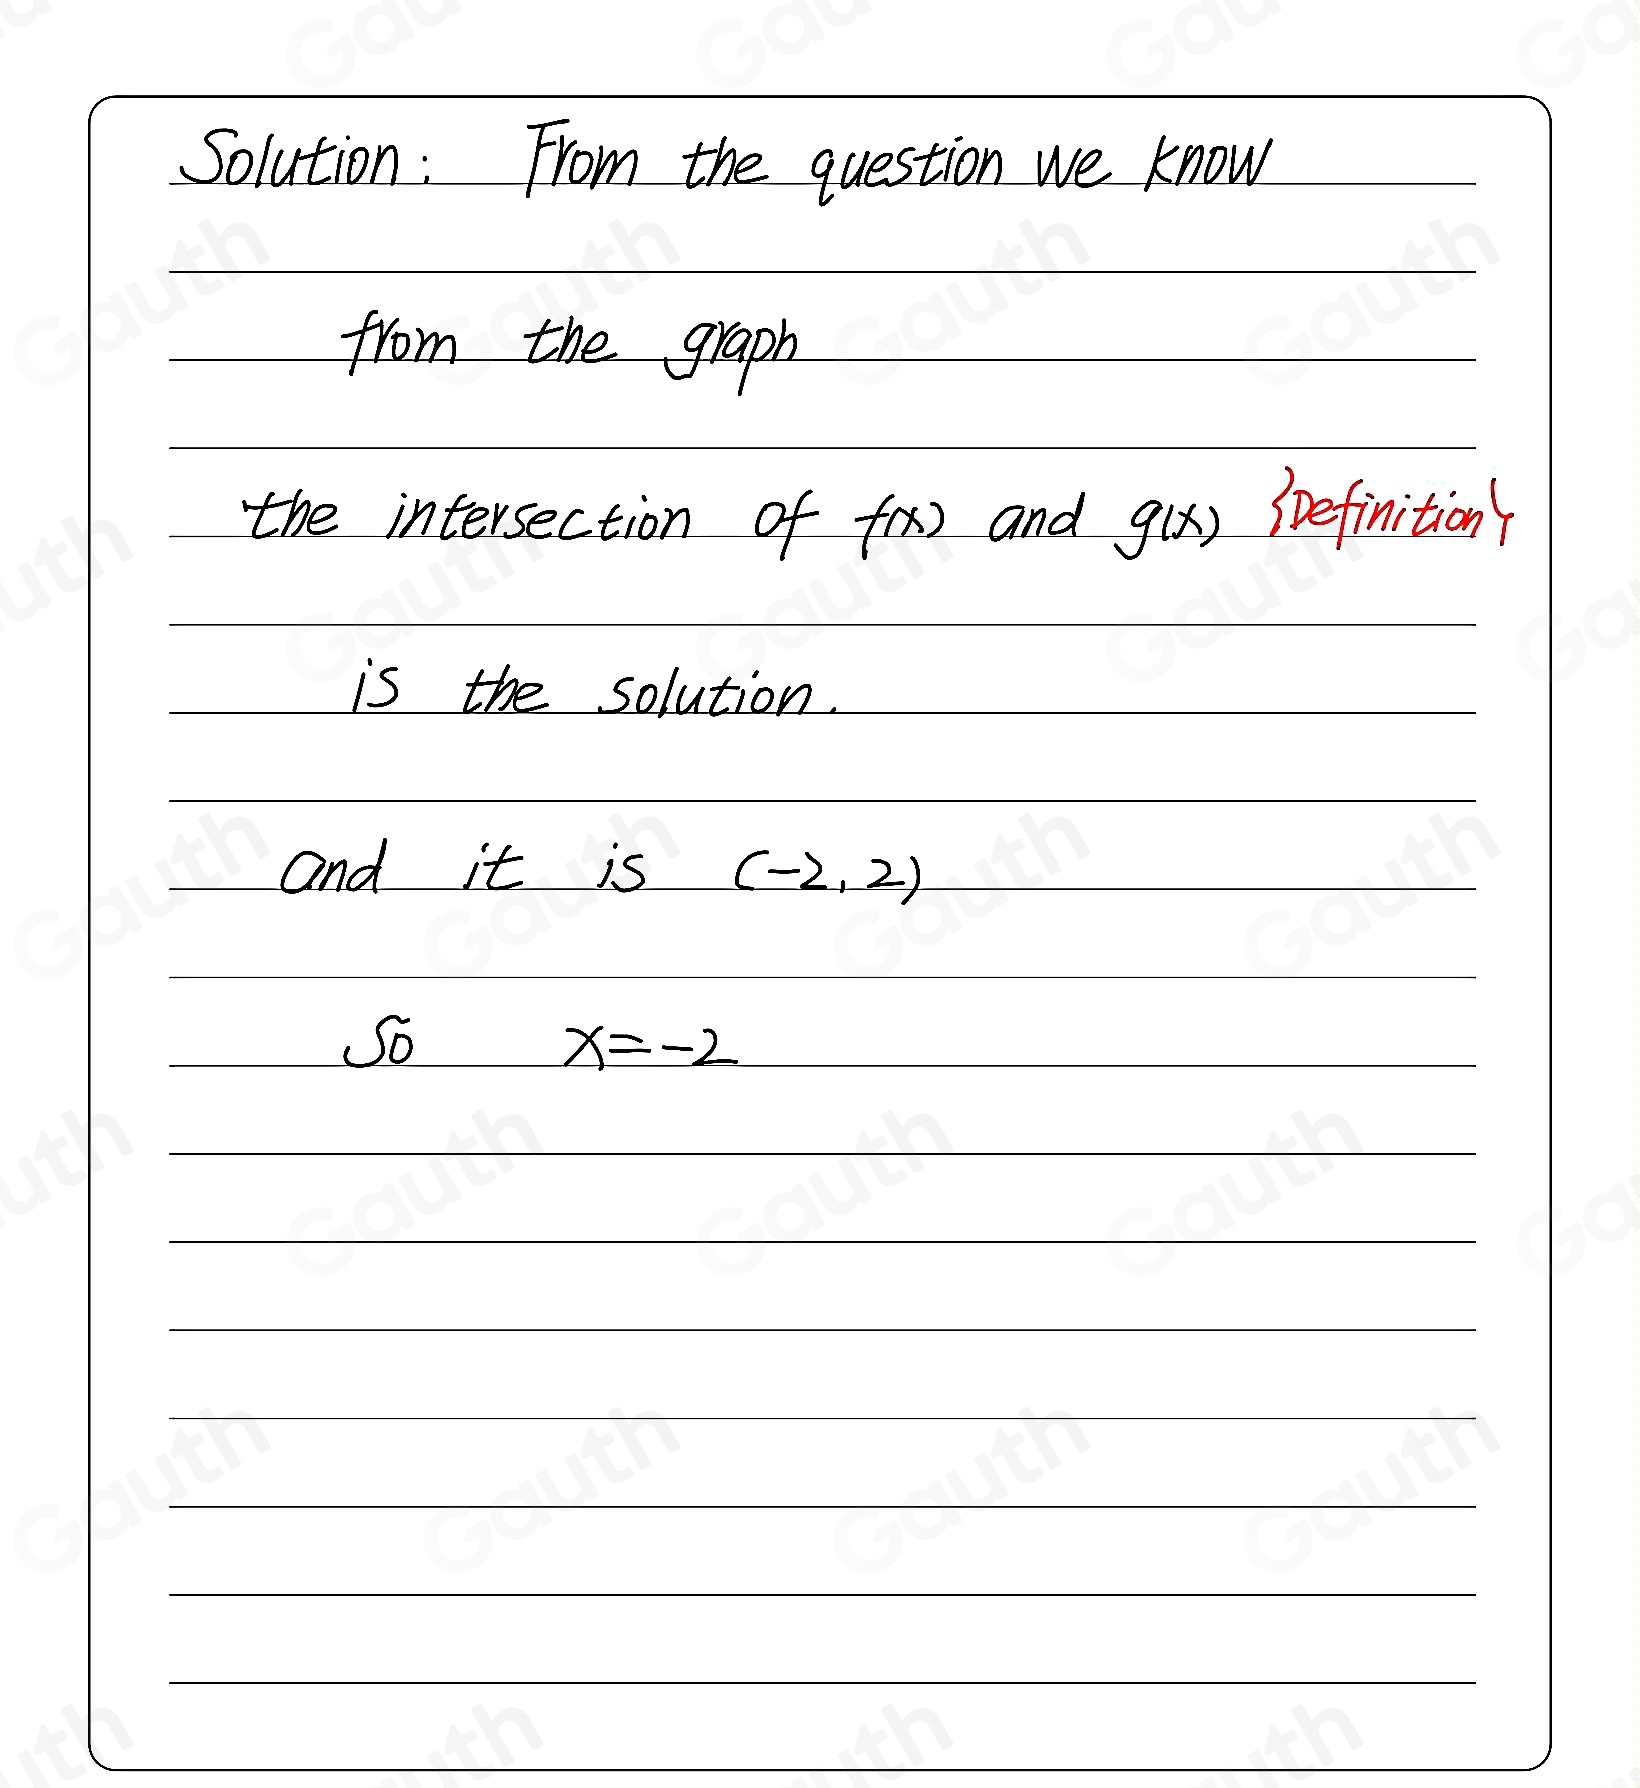 Solution: From the question we know
from the graph
the intersection of f(x) and g(x) {Definition}
is the solution.
and it is (-2, 2)
So x=-2